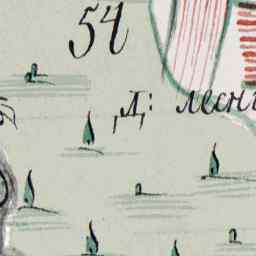 54
Д: лесн